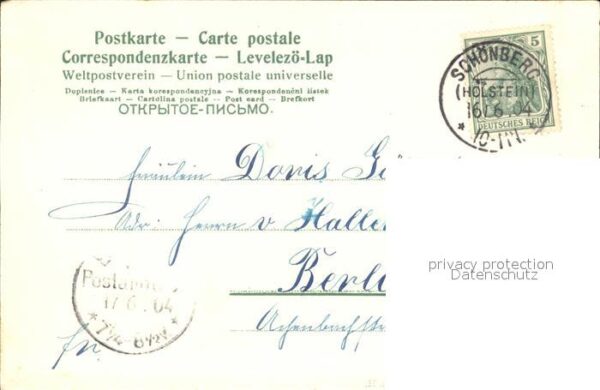 Postkarte — Carte postale
Correspondenzkarte — Levelező-Lap
Weltpostverein — Union postale universelle
Dopisnice — Karta korespondencyjna — Korespondenční lístek
Briefkaart — Cartolina postale — Post card — Brefkort
ОТКРЫТОЕ-ПИСЬМО.
5
DEUTSCHES REICH
SCHÖNBERG
(HOLSTEIN)
16/6.04
* 10-11N.
Fräulein Doris
Adr. Herrn v Halle
Berli
Achenbachstr
Postamt
17.6.04
fr.
privacy protection
Datenschutz